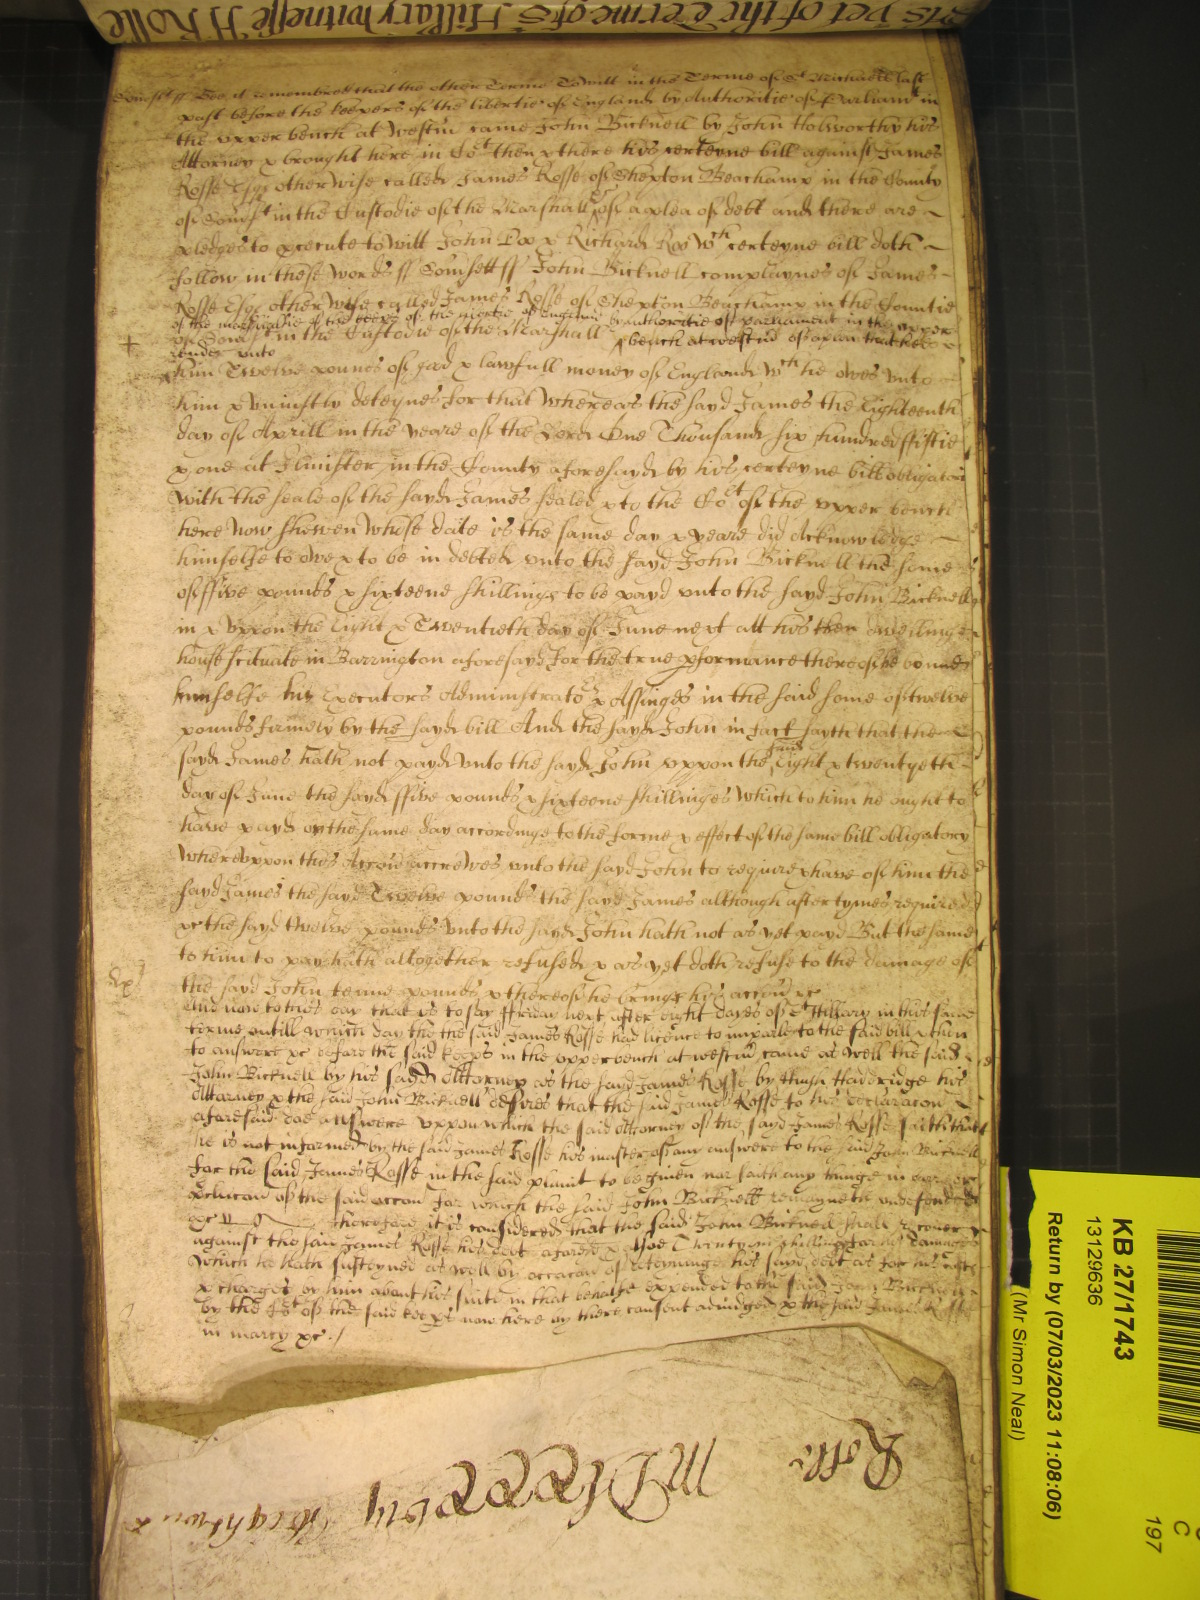 Hillary witnesse H Rolle
Somsett ss Bee it remembred that the other Terme To will in the Terme of St Michaell last
past before the keepers of the libertie of England by Authoritie of Parliamt in
the upper bench at Westm came John Bicknell by John Holworthy his
Attorney & brought here in Cort then & there his certeyne bill against James
Rosse Esqr otherwise called James Rosse of Shepton Beachamp in the County
of Somst in the Custodie of the Marshall &c of a plea of debt and there are
pledges to prosecute to will John Doo & Richard Roo wch certeyne bill doth
follow in these words ss Somsett ss John Bicknell complaynes of James
Rosse Esqr otherwise called James Rosse of Shepton Beachamp in the Countie
of the marshalsie of the keeps of the libertie of England by authoritie of parliament in the upper
of Somst in the Custodie of the Marshall bench at westm of a plea that hee
render unto
him Twelve pounds of good & lawfull money of England wch he owes unto
him & uniustly deteynes for that whereas the sayd James the Eighteenth
day of Aprill in the yeare of the Lord One Thousand six hundred ffiftie
& one at Ilminster in the County aforesayd by his certeyne bill obligatory
with the seale of the sayd James sealed & to the Cort of the upper bench
here now shewen whose date is the same day & yeare did Acknowledge
himselfe to owe & to be in debted unto the sayd John Bicknell the some
of ffive pounds & sixteene shillings to be payd unto the sayd John Bicknell
in & uppon the Eight & Twentieth day of June next att his then dwellinge
house scituate in Barrington aforesayd for the true pformance thereof he bound
himselfe his Executors Administrators & Assinges in the said some of twelve
pounds firmely by the sayd bill And the sayd John in fact sayth that the
sayd James hath not payd unto the sayd John uppon the said Eight & twentyeth
day of June the sayd ffive pounds & sixteene shillinges which to him he ought to
have payd on the same day accordinge to the forme & effect of the same bill obligatory
whereuppon this Accon accrewes unto the sayd John to require & have of him the
sayd James the sayd Twelve pounds the sayd James although aftertymes required
&c the sayd twelve pounds unto the sayd John hath not as yet payd But the same
to him to pay hath altogether refused & as yet doth refuse to the damage of
the sayd John tenne pounds & thereof he bringes his accon &c
And now to this day that is to say ffriday next after eight dayes of St Hillary in this same
terme untill which day the the said James Rosse had licence to imparle to the said bill & then
to answere &c before the said keeps in the upper bench at westm came as well the said
John Bicknell by his sayd Attorney as the sayd James Rosse by Hugh Hadridge his
Attorney & the said John Bicknell desires that the said James Rosse to his declaracon
aforesaid doe answere uppon which the said Attorney of the sayd James Rosse saith that
he is not informed by the said James Rosse his master of any answere to the said John Bicknell
for the said James Rosse in the said plaint to be given nor saith any thinge in
of the said accon for which the said John Bicknell remayneth undefended
&c therefore it is considered that the said John Bicknell shall recover
against the said James Rosse his debt aforesd & also Twenty shillinges for his damages
which he hath susteyned as well by occacon of deteyninge his sayd debt as for his
& charges by him about his suite in that behalfe expended to the said John Bicknell
by the Cort of the said keeps now here by there consent adiudged & the said James Rosse
in marcy &c
Rolle
KB 27/1743
13129636
Return by (07/03/2023 11:08:06)
(Mr Simon Neal)
C
197